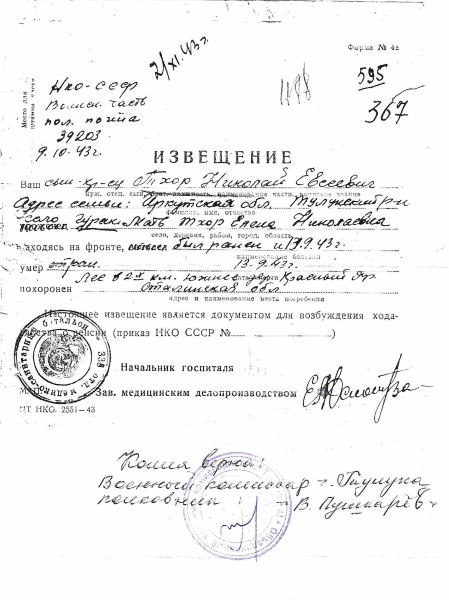 2/XI.43г.
Форма № 4а
Место для штампа
1198
595
367
НКО-СССР
Воинск. часть
пол. почта
39203
9.10.43г.
ИЗВЕЩЕНИЕ
Ваш сын кр-ец Тхор Николай Евсеевич
муж, отец, сын, брат, наименование части, воинское звание
Адрес семьи: Иркутская обл. Тулунский р-н
фамилия, имя, отчество
село Мать Тхор Елена Николаевна
село, деревня, район, город, область
находясь на фронте, был ранен и 13.9.43г.
наименование болезни
умер от ран. 13.9.43г.
Лес в 2х км. южнее Красный
похоронен Сталинская обл.
адрес и наименование места погребения
Настоящее извещение является документом для возбуждения хода-
тайства о пенсии (приказ НКО СССР №)
Начальник госпиталя
Зав. медицинским делопроизводством
338 отд. медико-санитарный батальон
НКО. 2551—43
Копия верна:
Военный комиссар г. Тулуна
полковник: В. Пушкарёв